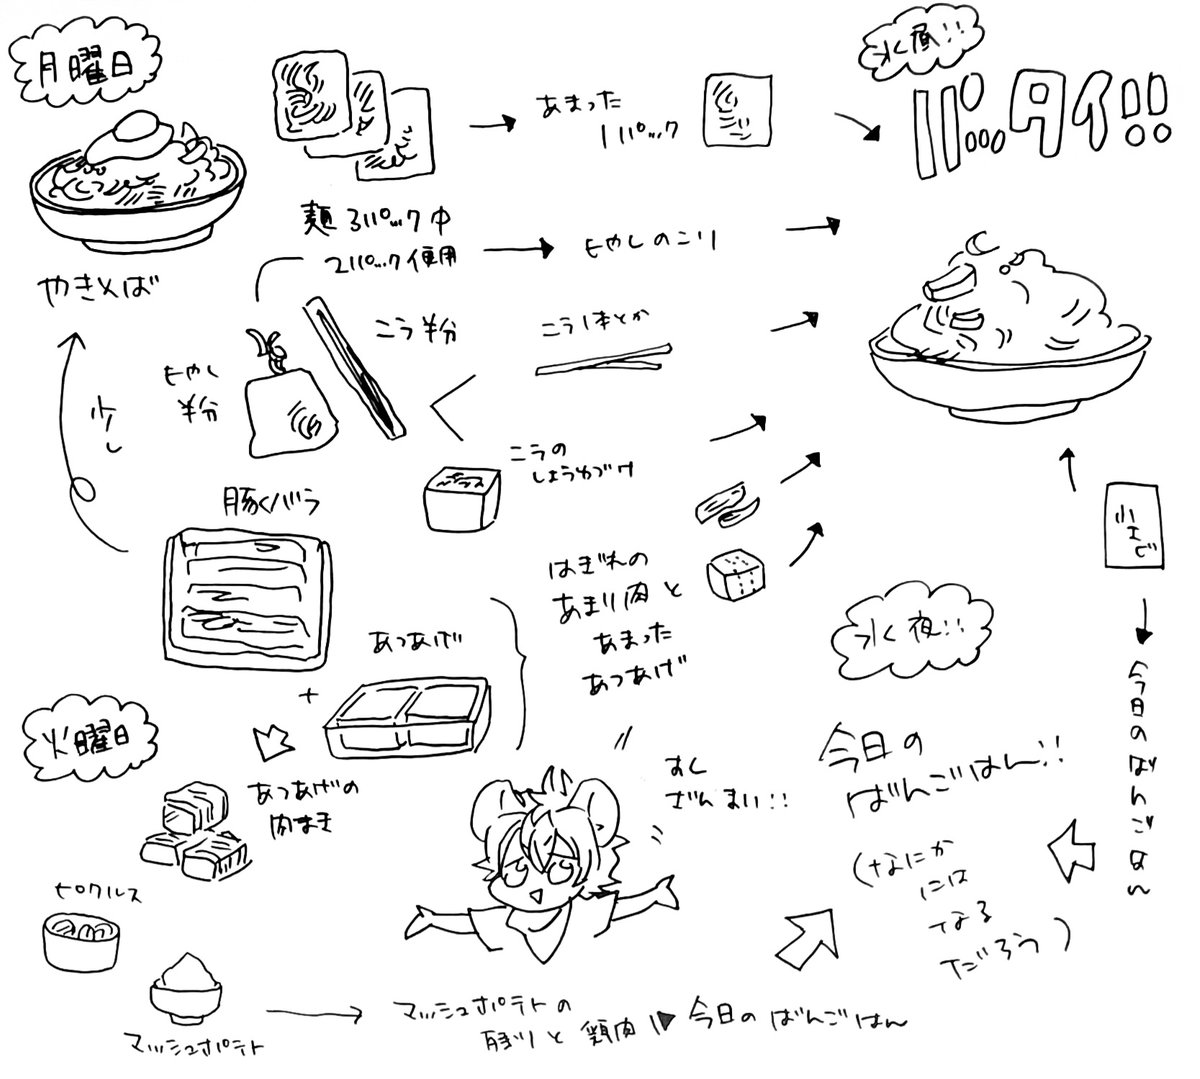 月曜日
やきそば
麺 3パック中
2パック使用
あまった
1パック
水昼!!
パッタイ!!
もやし
半分
ニラ半分
もやしのこり
ニラ1本とか
ニラの
しょうゆづけ
少し
豚バラ
あつあげ
+
はぎれの
あまり肉と
あまった
あつあげ
小エビ
今日のばんごはん
水夜!!
今日の
ばんごはん!!
(なにか
には
なる
だろう)
火曜日
あつあげの
肉まき
ピクルス
マッシュポテト
マッシュポテトの
残りと鶏肉
今日のばんごはん